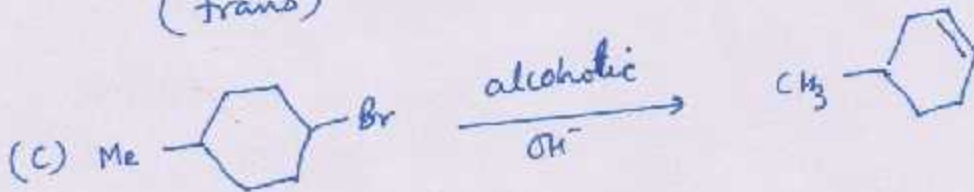 (trans)
(C) Me Br alcoholic OH⁻ CH₃